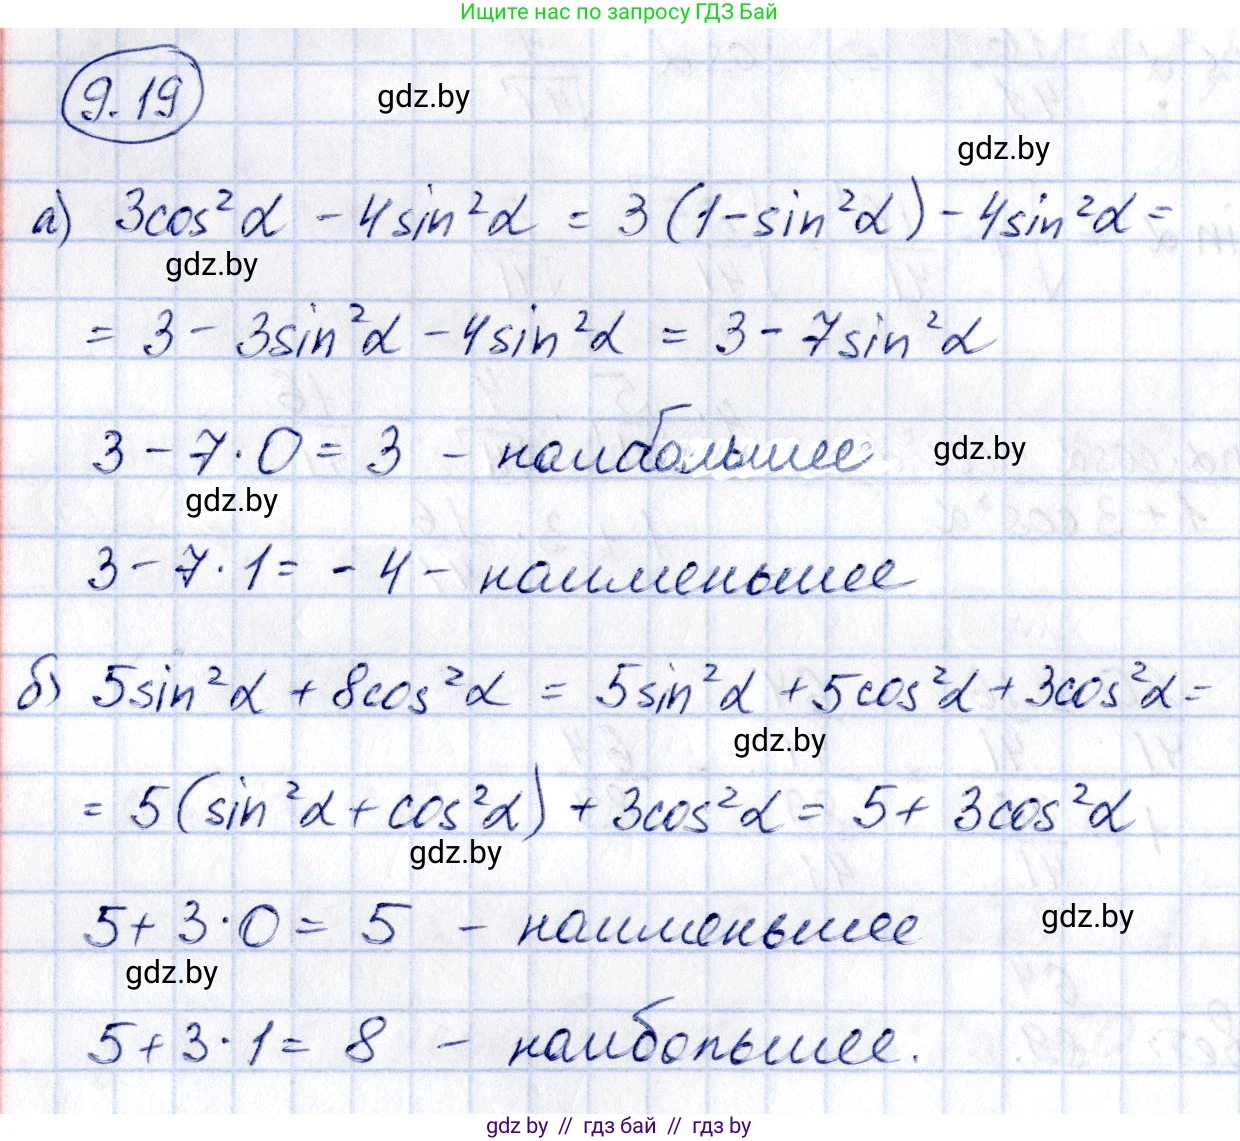 Ищите нас по запросу ГДЗ Бай
9.19
gdz.by
gdz.by
а) 3cos²α - 4sin²α = 3(1-sin²α) - 4sin²α =
gdz.by
= 3 - 3sin²α - 4sin²α = 3 - 7sin²α
3 - 7·0 = 3 - наибольшее
gdz.by
gdz.by
3 - 7·1 = -4 - наименьшее
б) 5sin²α + 8cos²α = 5sin²α + 5cos²α + 3cos²α =
gdz.by
= 5(sin²α + cos²α) + 3cos²α = 5 + 3cos²α
gdz.by
5 + 3·0 = 5 - наименьшее
gdz.by
gdz.by
5 + 3·1 = 8 - наибольшее.
gdz.by // гдз бай // гдз by